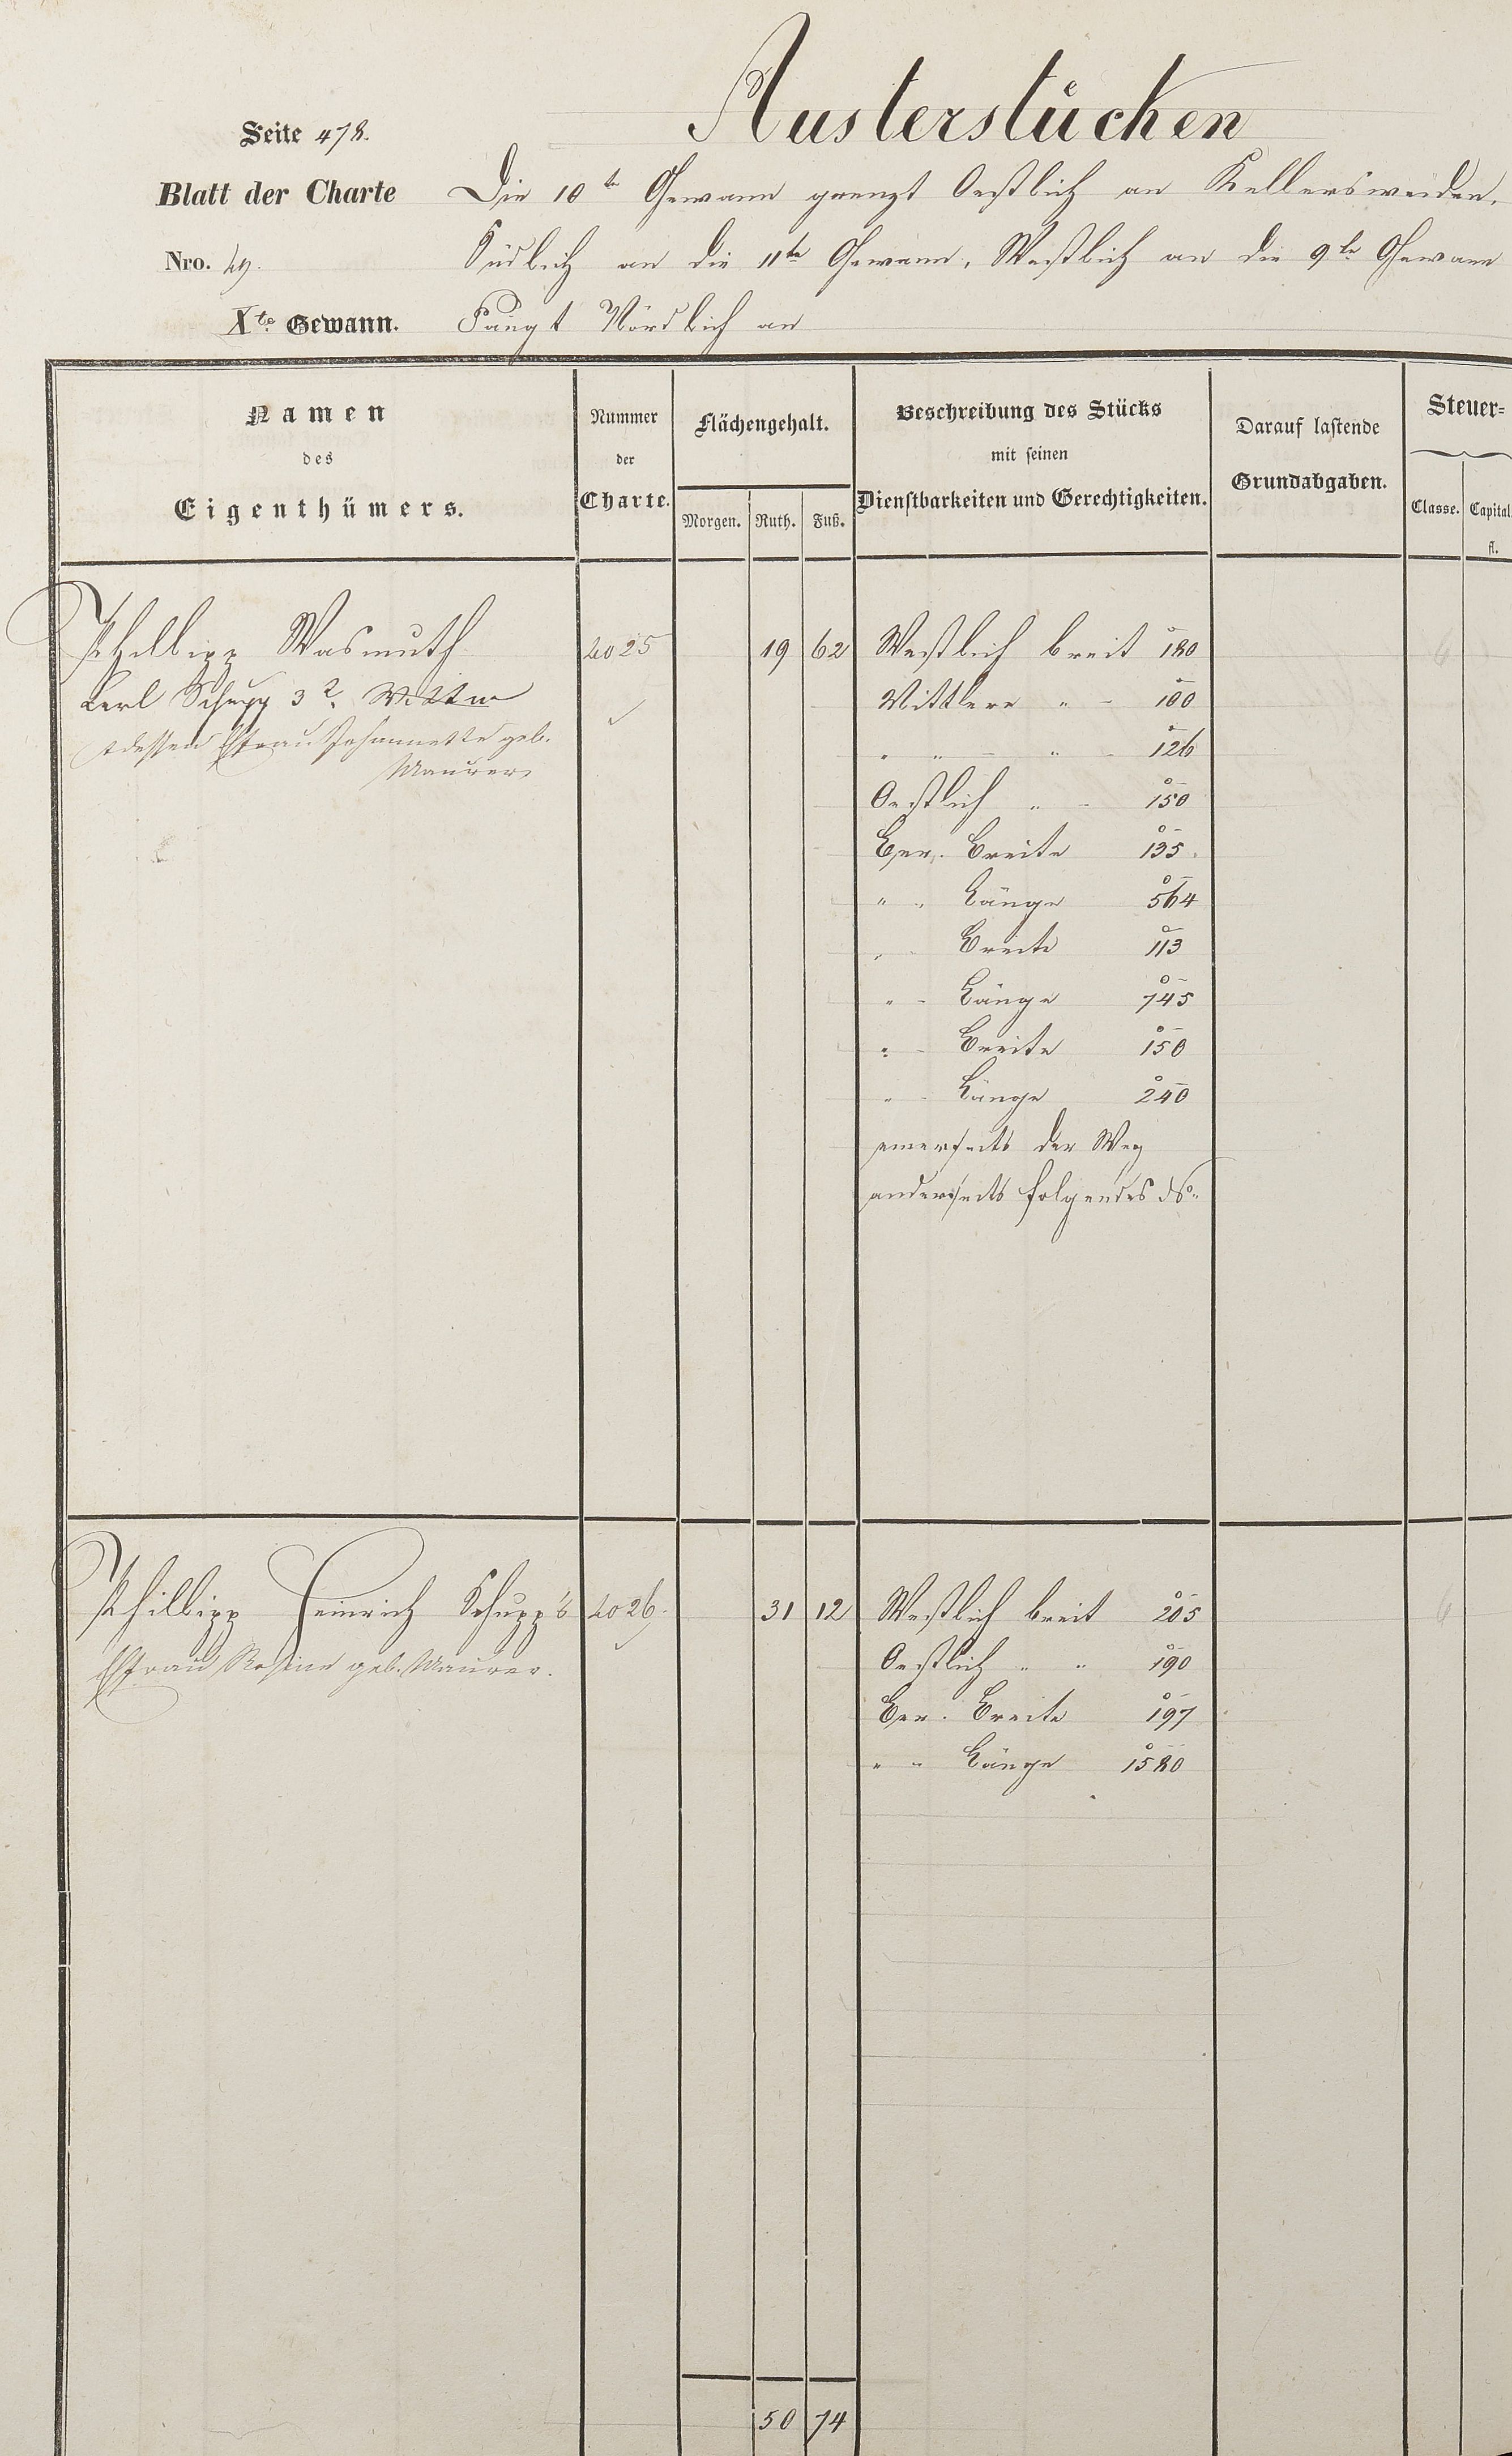 Austerstücken
Seite 478.
Blatt der Charte
Die 10te Gewann grenzt Oestlich an Kellersweiden,
Nro. 49.
Südlich an die 11te Gewann, Westlich an die 9te Gewann
Xte Gewann.
Fängt Nördlich an
Namen
des
Eigenthümers.
Nummer
der
Charte.
Flächengehalt.
Morgen. Ruth. Fuß.
Beschreibung des Stücks
mit seinen
Dienstbarkeiten und Gerechtigkeiten.
Darauf lastende
Grundabgaben.
Steuer-
Classe. Capital
fl.
Phillipp Wasmuth 4025 19 62 Westlich breit 180
Karl Schupp 3r. Wittw Mittlere " - 100
+ dessen Efrau Johannette geb. " " - " - 126
Maurer
Oestlich " - 150
Ger. Breite 135.
" " Länge 564
" - Breite 113
" - Länge 745
" - Breite 150
" - Länge 240
einerseits der Weg
anderseits folgendes No.
Phillipp Heinrich Schupp's 4026. 31 12 Westlich breit 205 6
Efrau Rosine geb. Maurer. Oestlich " " 190
Ger. Breite 197
" " Länge 1580
50 74